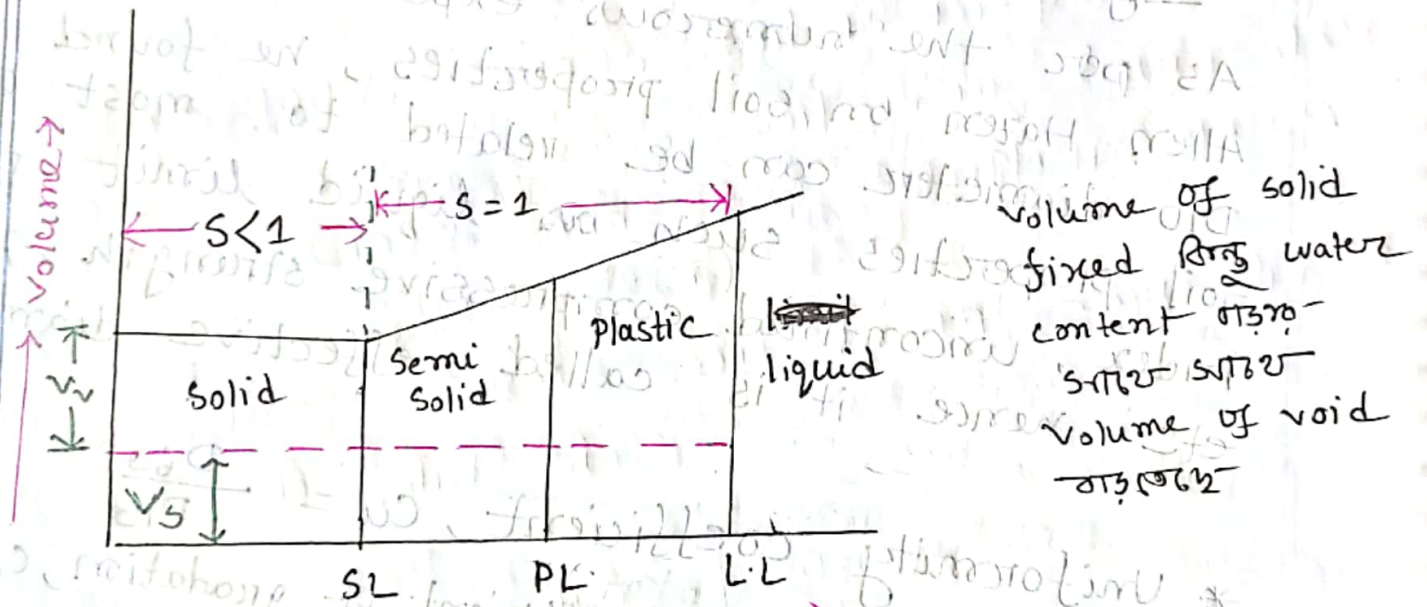 volume →
S<1
S=1
Vv
Solid
Semi
Solid
Plastic
liquid
Vs
SL
PL
L.L
volume of solid
fixed কিন্তু water
content বাড়ার
সাথে সাথে
volume of void
বাড়তেছে